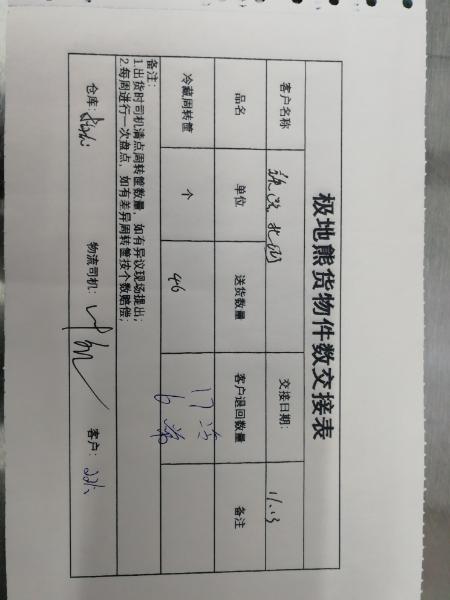 极地熊货物件数交接表
客户名称 交接日期: 11.13
品名 单位 送货数量 客户退回数量 备注
冷藏周转筐 个 46 17
6
备注:
1.出货时司机清点周转筐数量,如有异议现场提出;
2.每周进行一次盘点,如有差异周转筐按个数赔偿;
仓库: 物流司机: 客户: